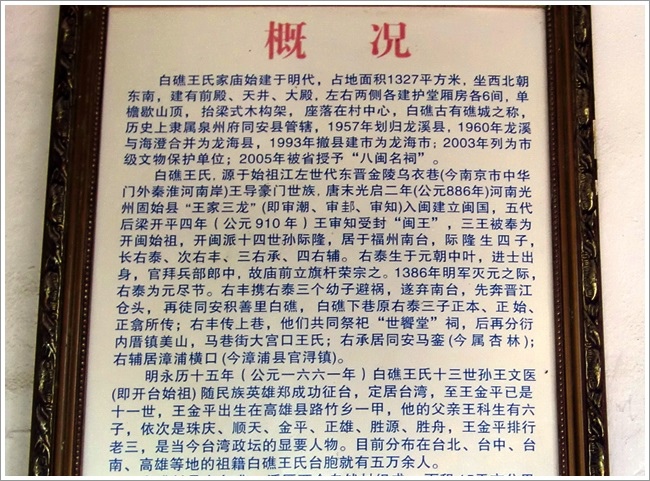 概 况
白礁王氏家庙始建于明代，占地面积1327平方米，坐西北朝
东南，建有前殿、天井、大殿，左右两侧各建护堂厢房各6间，单
檐歇山顶，抬梁式木构架，座落在村中心，白礁古有礁城之称，
历史上隶属泉州府同安县管辖，1957年划归龙溪县，1960年龙溪
与海澄合并为龙海县，1993年撤县建市为龙海市；2003年列为市
级文物保护单位；2005年被省授予“八闽名祠”。
白礁王氏，源于始祖江左世代东晋金陵乌衣巷(今南京市中华
门外秦淮河南岸)王导豪门世族，唐末光启二年(公元886年)河南光
州固始县“王家三龙”(即审潮、审邽、审知)入闽建立闽国，五代
后梁开平四年（公元910年）王审知受封“闽王”，三王被奉为
开闽始祖，开闽派十四世孙际隆，居于福州南台，际隆生四子，
长右泰、次右丰、三右承、四右辅。右泰生于元朝中叶，进士出
身，官拜兵部郎中，故庙前立旗杆荣宗之。1386年明军灭元之际，
右泰为元尽节。右丰携右泰三个幼子避祸，遂弃南台，先奔晋江
仓头，再徒同安积善里白礁，白礁下巷原右泰三子正本、正始、
正翕所传；右丰传上巷，他们共同祭祀“世饗堂”祠，后再分衍
内厝镇美山，马巷街大宫口王氏；右承居同安马銮(今属杏林)；
右辅居漳浦横口(今漳浦县官浔镇)。
明永历十五年（公元一六六一年）白礁王氏十三世孙王文医
(即开台始祖)随民族英雄郑成功征台，定居台湾，至王金平已是
十一世，王金平出生在高雄县路竹乡一甲，他的父亲王科生有六
子，依次是珠庆、顺天、金平、正雄、胜源、胜舟，王金平排行
老三，是当今台湾政坛的显要人物。目前分布在台北、台中、台
南、高雄等地的祖籍白礁王氏台胞就有五万余人。